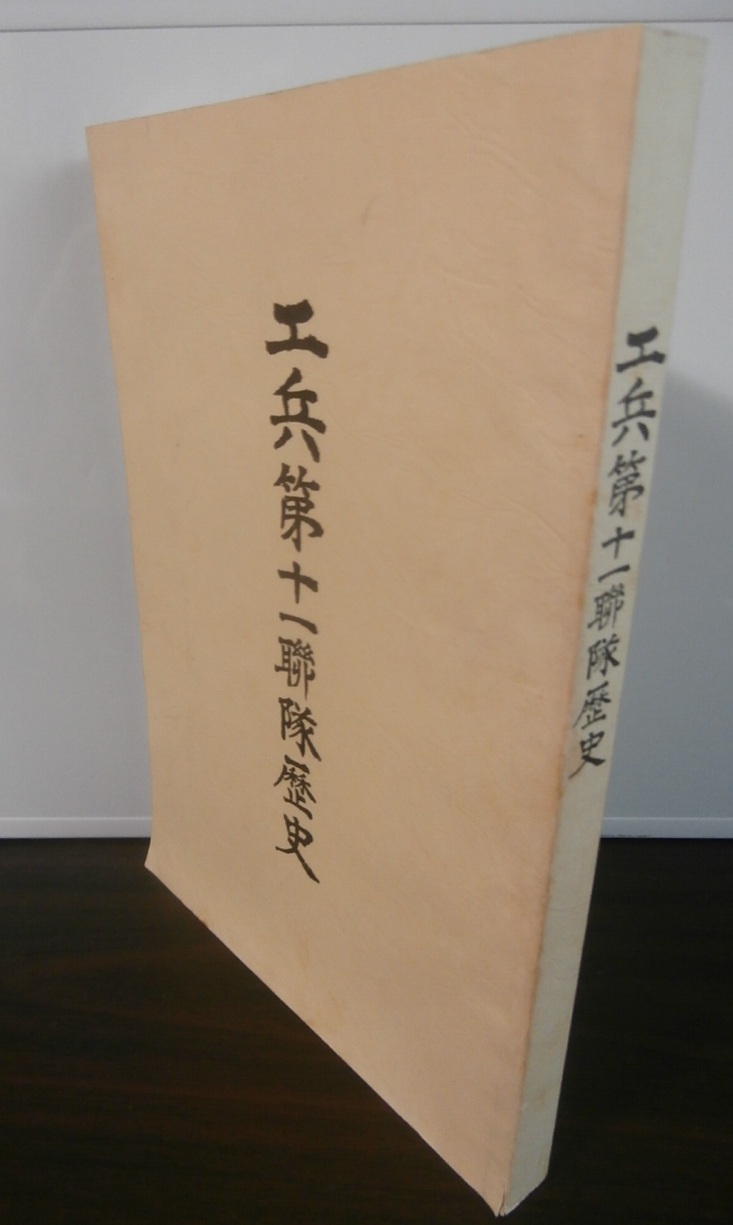 工兵第十一聯隊歷史
工兵第十一聯隊歴史